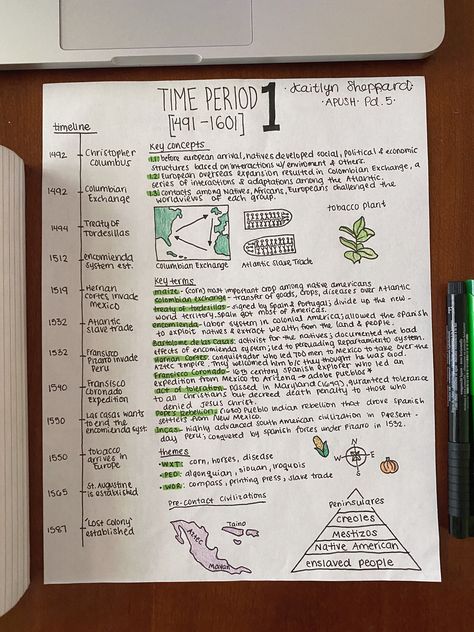 TIME PERIOD 1
[491-1601]
Kaitlyn Sheppard
APUSH Pd. 5
timeline
1492 Christopher Columbus
1492 Columbian Exchange
1494 Treaty of Tordesillas
1512 encomienda system est.
1519 Hernan Cortes invade Mexico
1532 Atlantic slave trade
1532 Fransisco Pizaro invade Peru
1540 Fransisco coronado expedition
1550 Las casas wants to end the encomienda syst.
1550 tobacco arrives in Europe
1565 St. Augustine is established
1587 "Lost Colony" established
Key concepts
1.1) before european arrival, natives developed social, political & economic
structures based on interactions w/ enviroment & others.
1.2) European overseas expansion resulted in Colombian Exchange, a
series of interactions & adaptations among the Atlantic.
1.3) contacts among Natives, Africans, Europeans challenged the
worldviews of each group.
Columbian Exchange
Atlantic Slave Trade
tobacco plant
Key terms
maize- (corn) most important crop among native americans
colombian exchange- transfer of goods, crops, diseases over Atlantic
treaty of tordesillas- signed by Spain & Portugal; divide up the new-
world territory. Spain got most of Americas.
encomienda- labor system in colonial America; allowed the Spanish
to exploit natives & extract wealth from the land & people.
Bartolome de las Casas- activist for the natives; documented the bad
effects of encomienda system; led to persuading Repartamiento system.
Hernan Cortes- conquistador who led 700 men to Mexico to take over the
Aztec Empire. They welcomed him b/c they thought he was God.
Fransisco Coronado- 16th century Spanish Explorer who led an
expedition from Mexico to Arizona → adobe pueblos
act of toleration- passed in Maryland (1649), guranteed tolerance
to all christians but decreed death penalty to those who
denied Jesus Christ.
Pope's Rebellion- (1680) Pueblo Indian rebellion that drove Spanish
settlers from New Mexico.
Incas- highly advanced south American civilization in present-
day Peru; conquered by spanish forces under Pizarro in 1532.
themes
-WXT: corn, horses, disease
-PEO: algonguian, siouan, iroquois
-WOR: compass, printing press, slave trade
N
W E
S
Pre-contact Civilizations
Aztec
Taino
Mayan
Peninsulares
creoles
Mestizos
Native American
enslaved people